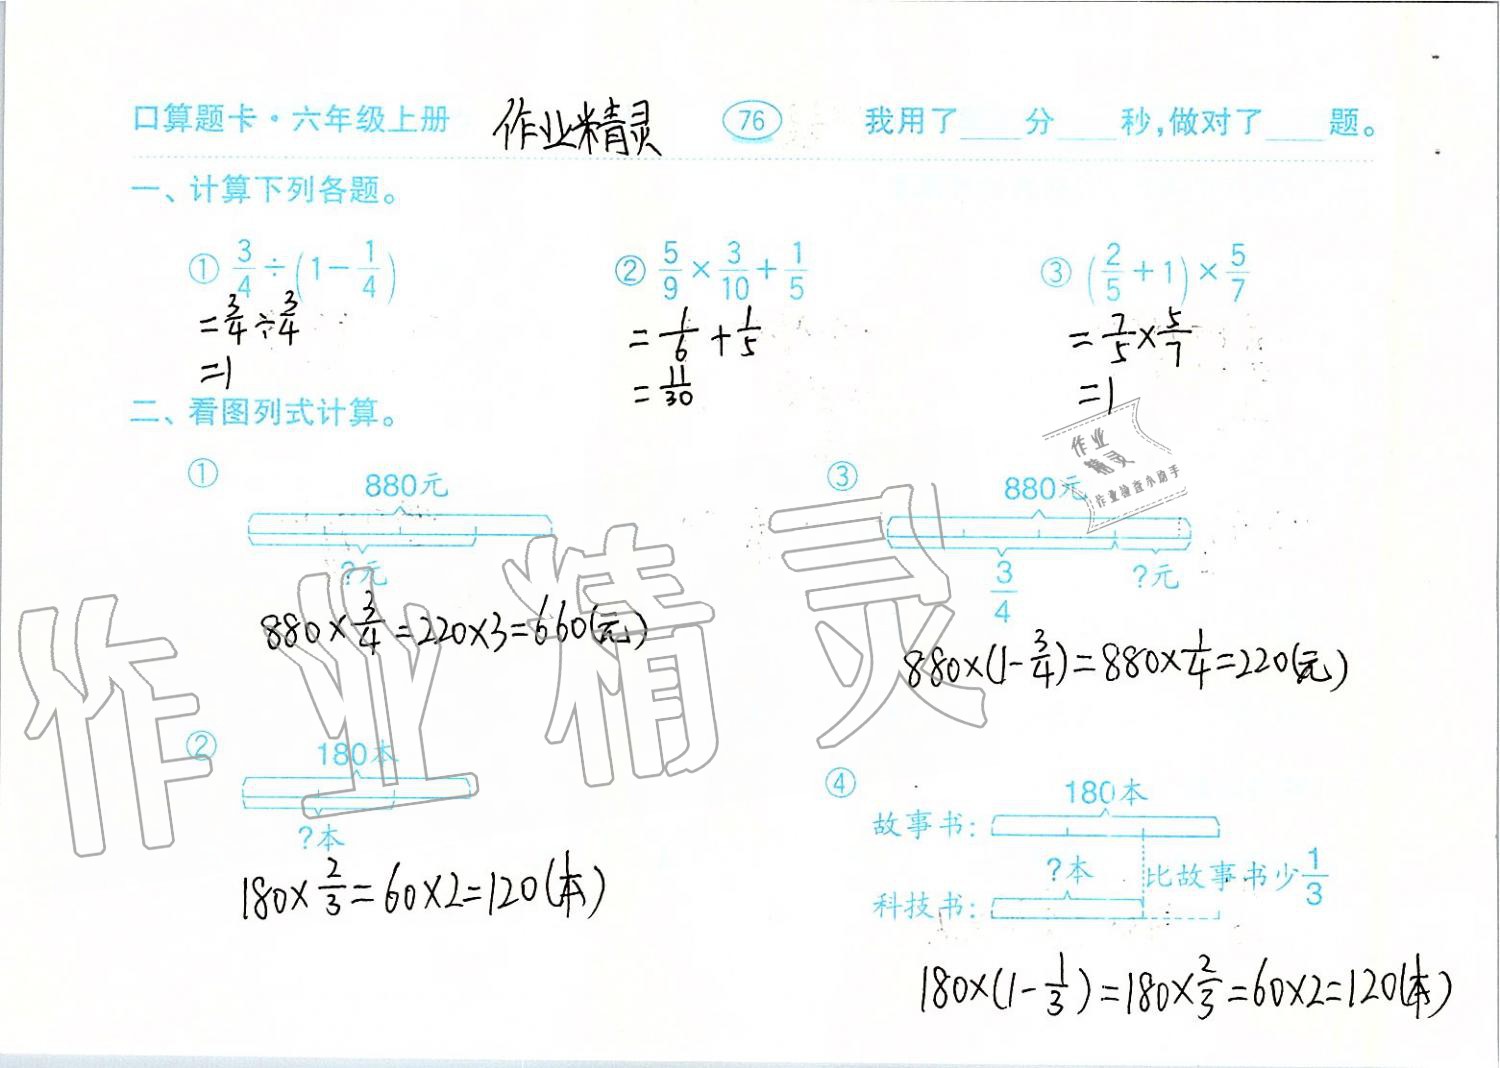 口算题卡·六年级上册 作业精灵 76 我用了____分____秒,做对了____题。
一、计算下列各题。
① 3/4÷(1-1/4) ② 5/9×3/10+1/5 ③ (2/5+1)×5/7
=3/4÷3/4 =1/6+1/5 =7/5×5/7
=1 =11/30 =1
二、看图列式计算。
作业
精灵
作业检查小助手
① 880元 ③ 880元
?元 3/4 ?元
880×3/4=220×3=660(元) 880×(1-3/4)=880×1/4=220(元)
作业精灵
② 180本 ④ 180本
故事书:
?本 ?本 比故事书少1/3
科技书:
180×2/3=60×2=120(本)
180×(1-1/3)=180×2/3=60×2=120(本)